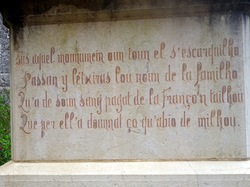 sus aquel mounumein oun toun el s'escarfailho
Passan y létxiras lou noum de la familho
Qu'a de soun sang pagat de la França'n tailhou
Que per ell'a dounnat ço qu'abio de milhou.